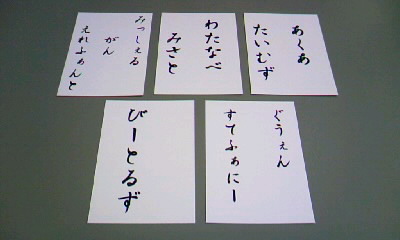 みっしぇる
がん
えれふぁんと
わたなべ
みさと
あくあ
たいむず
びーとるず
ぐうぇん
すてふぁにー